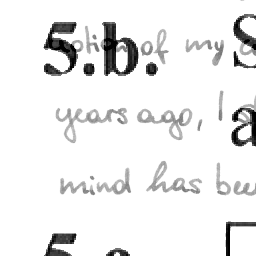 5.b. S
notion of my
years ago, I
a
mind has been
5.c.